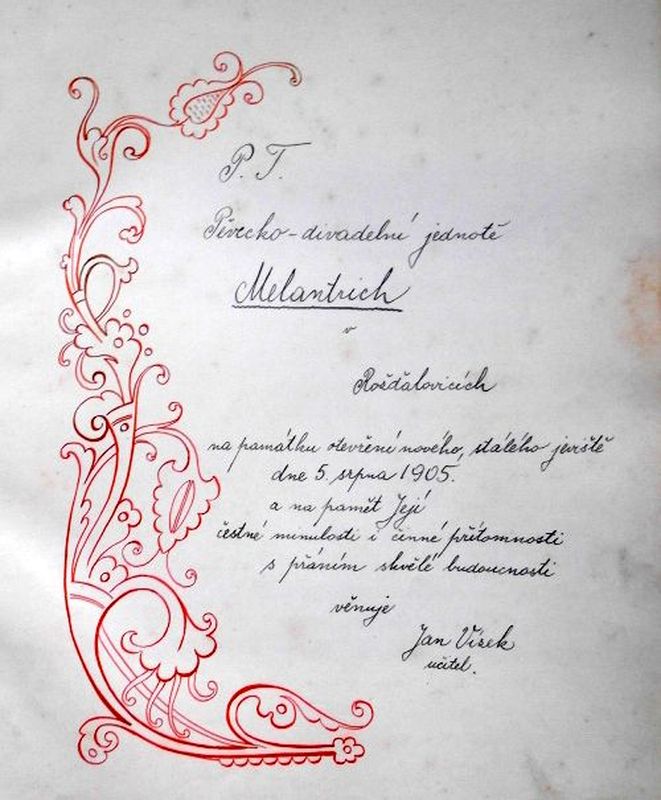 P. T.
Pěvecko-divadelní jednotě
Melantrich
v
Rožďalovicích
na památku otevření nového, stálého jeviště
dne 5. srpna 1905.
a na pamět Její
čestné minulosti i činné přítomnosti
s přáním skvělé budoucnosti
věnuje
Jan Vísek
učitel.